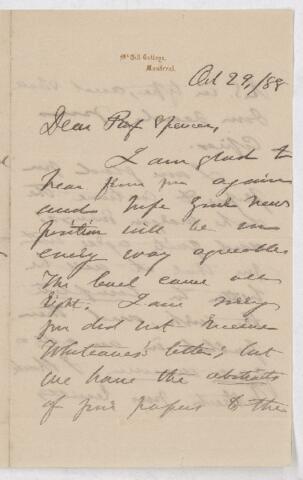 McGill College,
Montreal.
Oct 29, /88
Dear Prof Spencer,
I am glad to
hear from you again
and hope your new
position will be in
every way agreeable
The level came all
right. I am sorry
you did not receive
Whiteaves's letter, but
we have the abstracts
of your papers & the